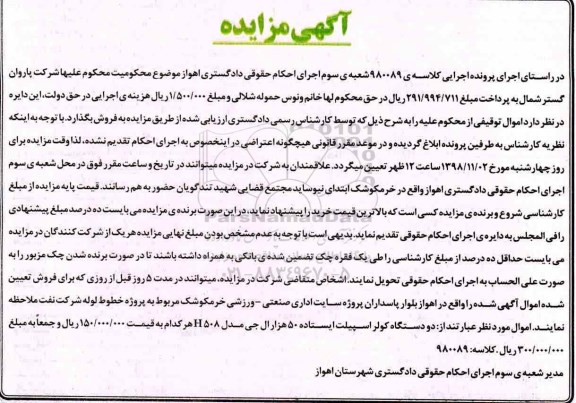 آگهی مزایده
در راستای اجرای پرونده اجرایی کلاسه ی ۹۸۰۰۸۹ شعبه ی سوم اجرای احکام حقوقی دادگستری اهواز موضوع محکومیت محکوم علیها شرکت پاروان
گستر شمال به پرداخت مبلغ ۲۹۱/۹۹۴/۷۱۱ ریال در حق محکوم لها خانم ونوس حموله شلالی و مبلغ ۱/۵۰۰/۰۰۰ ریال هزینه ی اجرایی در حق دولت، این دایره
در نظر دارد اموال توقیفی از محکوم علیه را به شرح ذیل که توسط کارشناس رسمی دادگستری ارزیابی شده از طریق مزایده به فروش بگذارد. با توجه به اینکه
نظریه کارشناس به طرفین پرونده ابلاغ گردیده و در موعد مقرر قانونی هیچگونه اعتراضی در اینخصوص به اجرای احکام تقدیم نشده، لذا وقت مزایده برای
روز چهارشنبه مورخ ۱۳۹۸/۱۱/۰۲ ساعت ۱۲ ظهر تعیین میگردد. علاقمندان به شرکت در مزایده میتوانند در تاریخ و ساعت مقرر فوق در محل شعبه ی سوم
اجرای احکام حقوقی دادگستری اهواز واقع در خرمکوشک ابتدای نیوساید مجتمع قضایی شهید تندگویان حضور به هم رسانند. قیمت پایه مزایده از مبلغ
کارشناسی شروع و برنده ی مزایده کسی است که بالاترین قیمت خرید را پیشنهاد نماید. در این صورت برنده ی مزایده می بایست ده درصد مبلغ پیشنهادی
را فی المجلس به دایره ی اجرای احکام حقوقی تقدیم نماید. بدیهی است با توجه به عدم مشخص بودن مبلغ نهایی مزایده هر یک از شرکت کنندگان در مزایده
می بایست حداقل ده درصد از مبلغ کارشناسی را طی یک فقره چک تضمین شده ی بانکی به همراه داشته باشند تا در صورت برنده شدن چک مزبور را به
صورت علی الحساب به اجرای احکام حقوقی تحویل نمایند. اشخاص متقاضی شرکت در مزایده، میتوانند در مدت ۵ روز قبل از روزی که برای فروش تعیین
شده اموال آگهی شده را واقع در اهواز بلوار پاسداران پروژه سایت اداری صنعتی - ورزشی خرمکوشک مربوط به پروژه خطوط لوله شرکت نفت ملاحظه
نمایند. اموال مورد نظر عبارتند از: دو دستگاه کولر اسپیلت ایستاده ۵۰ هزار ال جی مدل H۵۰۸ هر کدام به قیمت ۱۵۰/۰۰۰/۰۰۰ ریال و جمعاً به مبلغ
۳۰۰/۰۰۰/۰۰۰ ریال. کلاسه: ۹۸۰۰۸۹
مدیر شعبه ی سوم اجرای احکام حقوقی دادگستری شهرستان اهواز